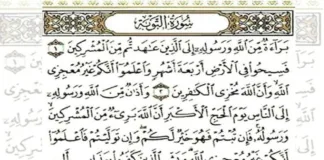 سورة التوبة
براءة من الله ورسوله إلى الذين عهدتم من المشركين ١
فسيحوا في الأرض أربعة أشهر واعلموا أنكم غير معجزي
الله وأن الله مخزي الكفرين ٢ وأذن من الله ورسوله
إلى الناس يوم الحج الأكبر أن الله بريء من المشركين
ورسوله فإن تبتم فهو خير لكم وإن توليتم فاعلموا
أنكم غير معجزي الله